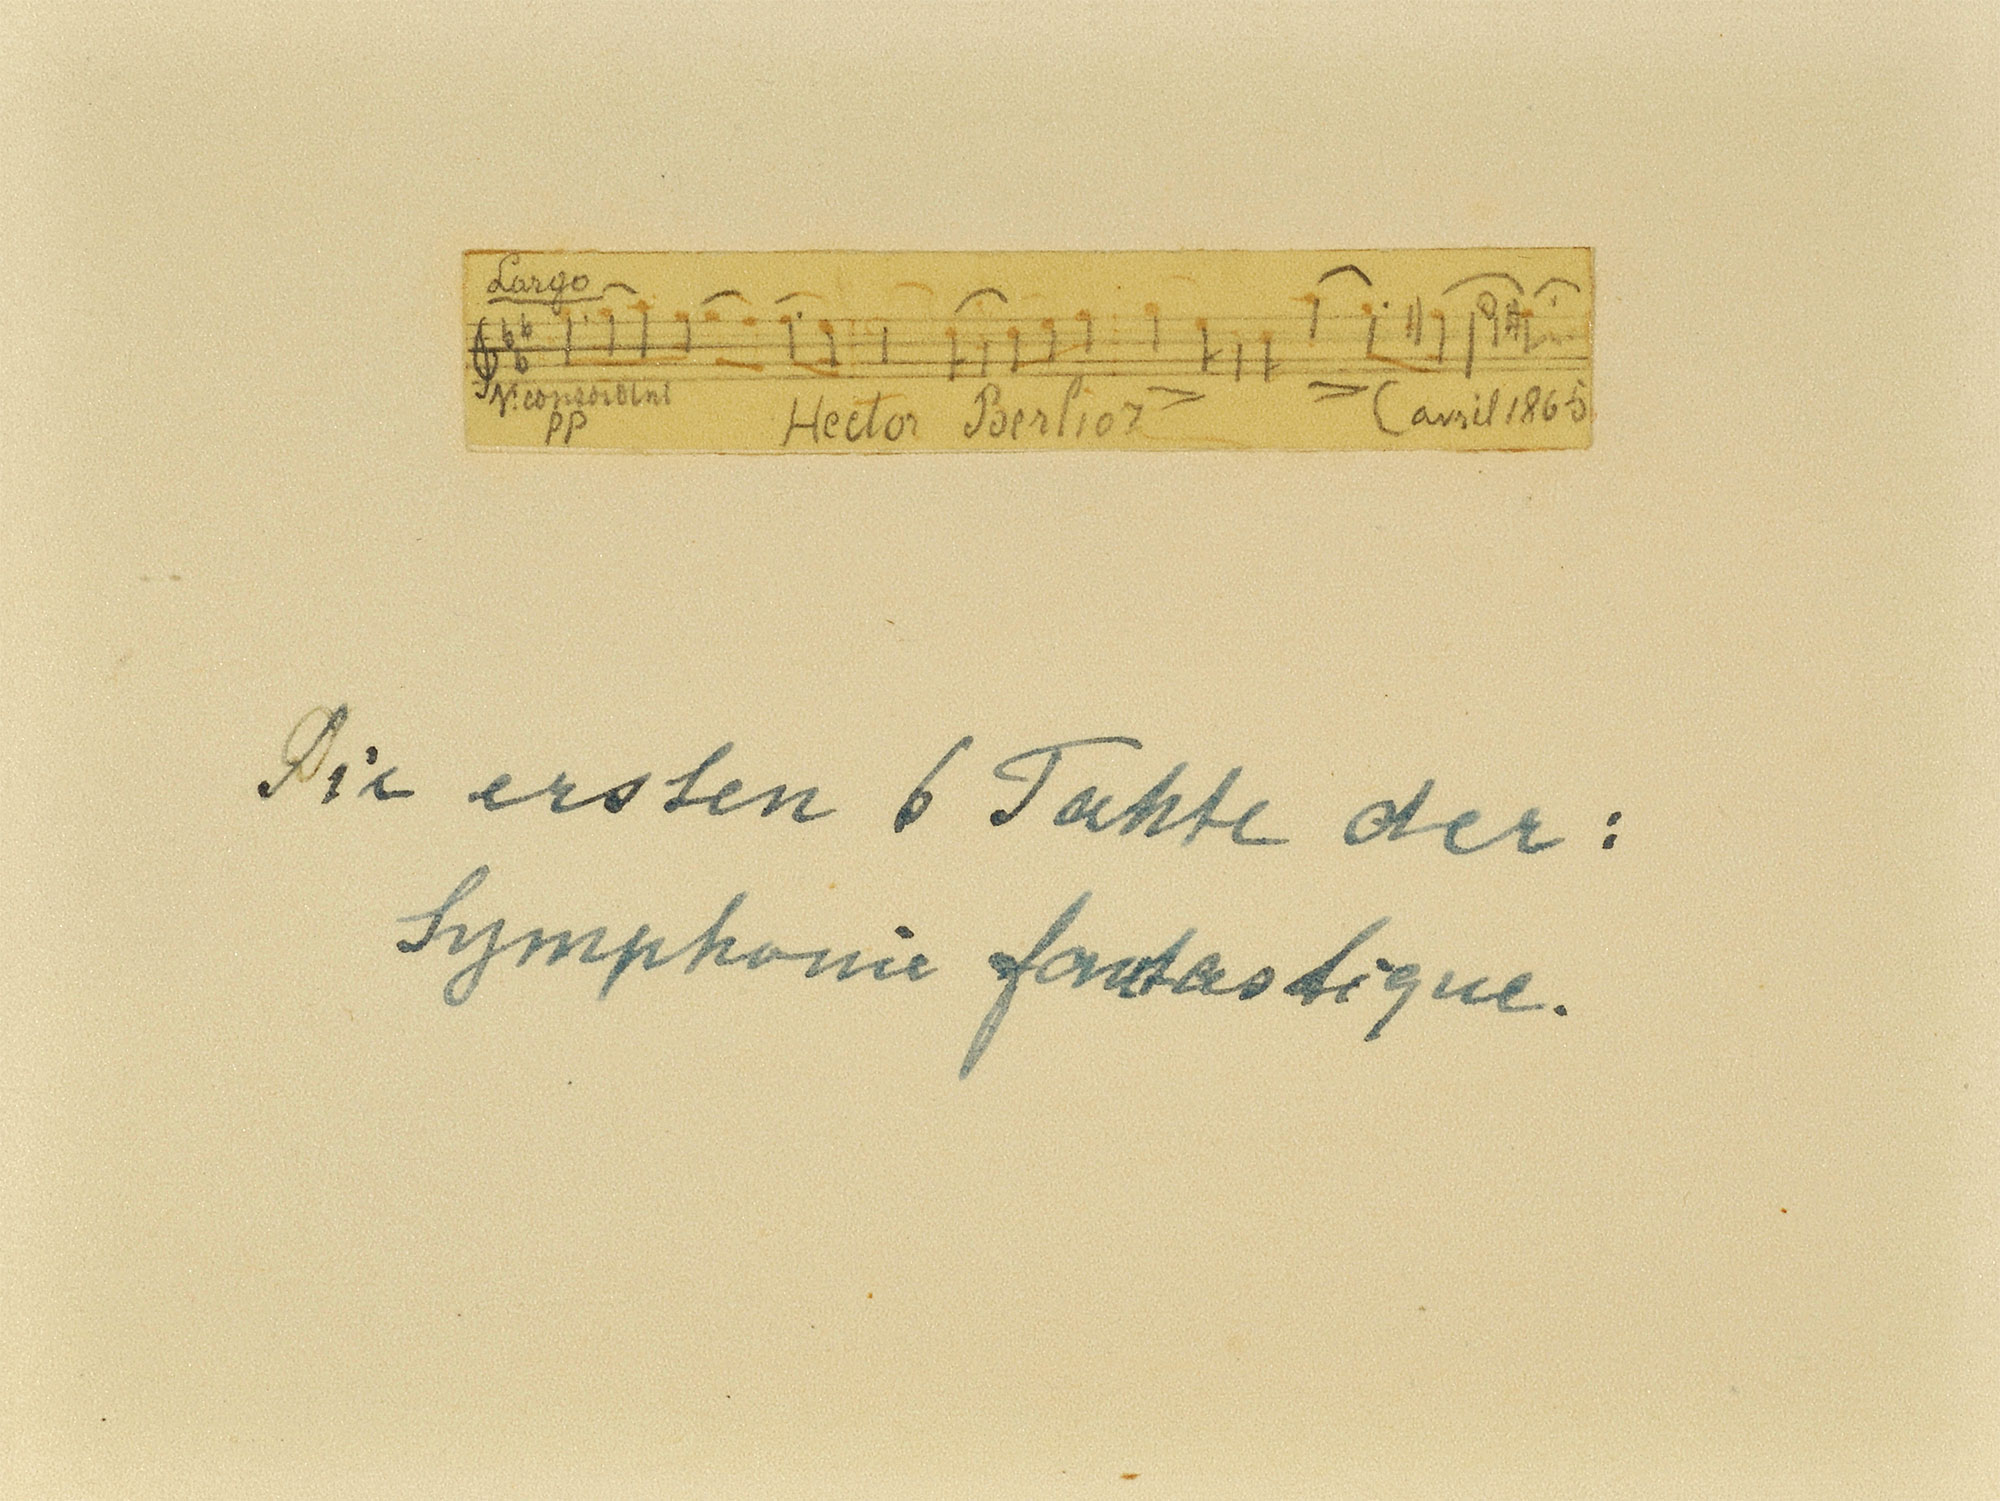 Largo
Vni con sordini
pp
Hector Berlioz
(avril 1865
Die ersten 6 Takte der:
Symphonie fantastique.